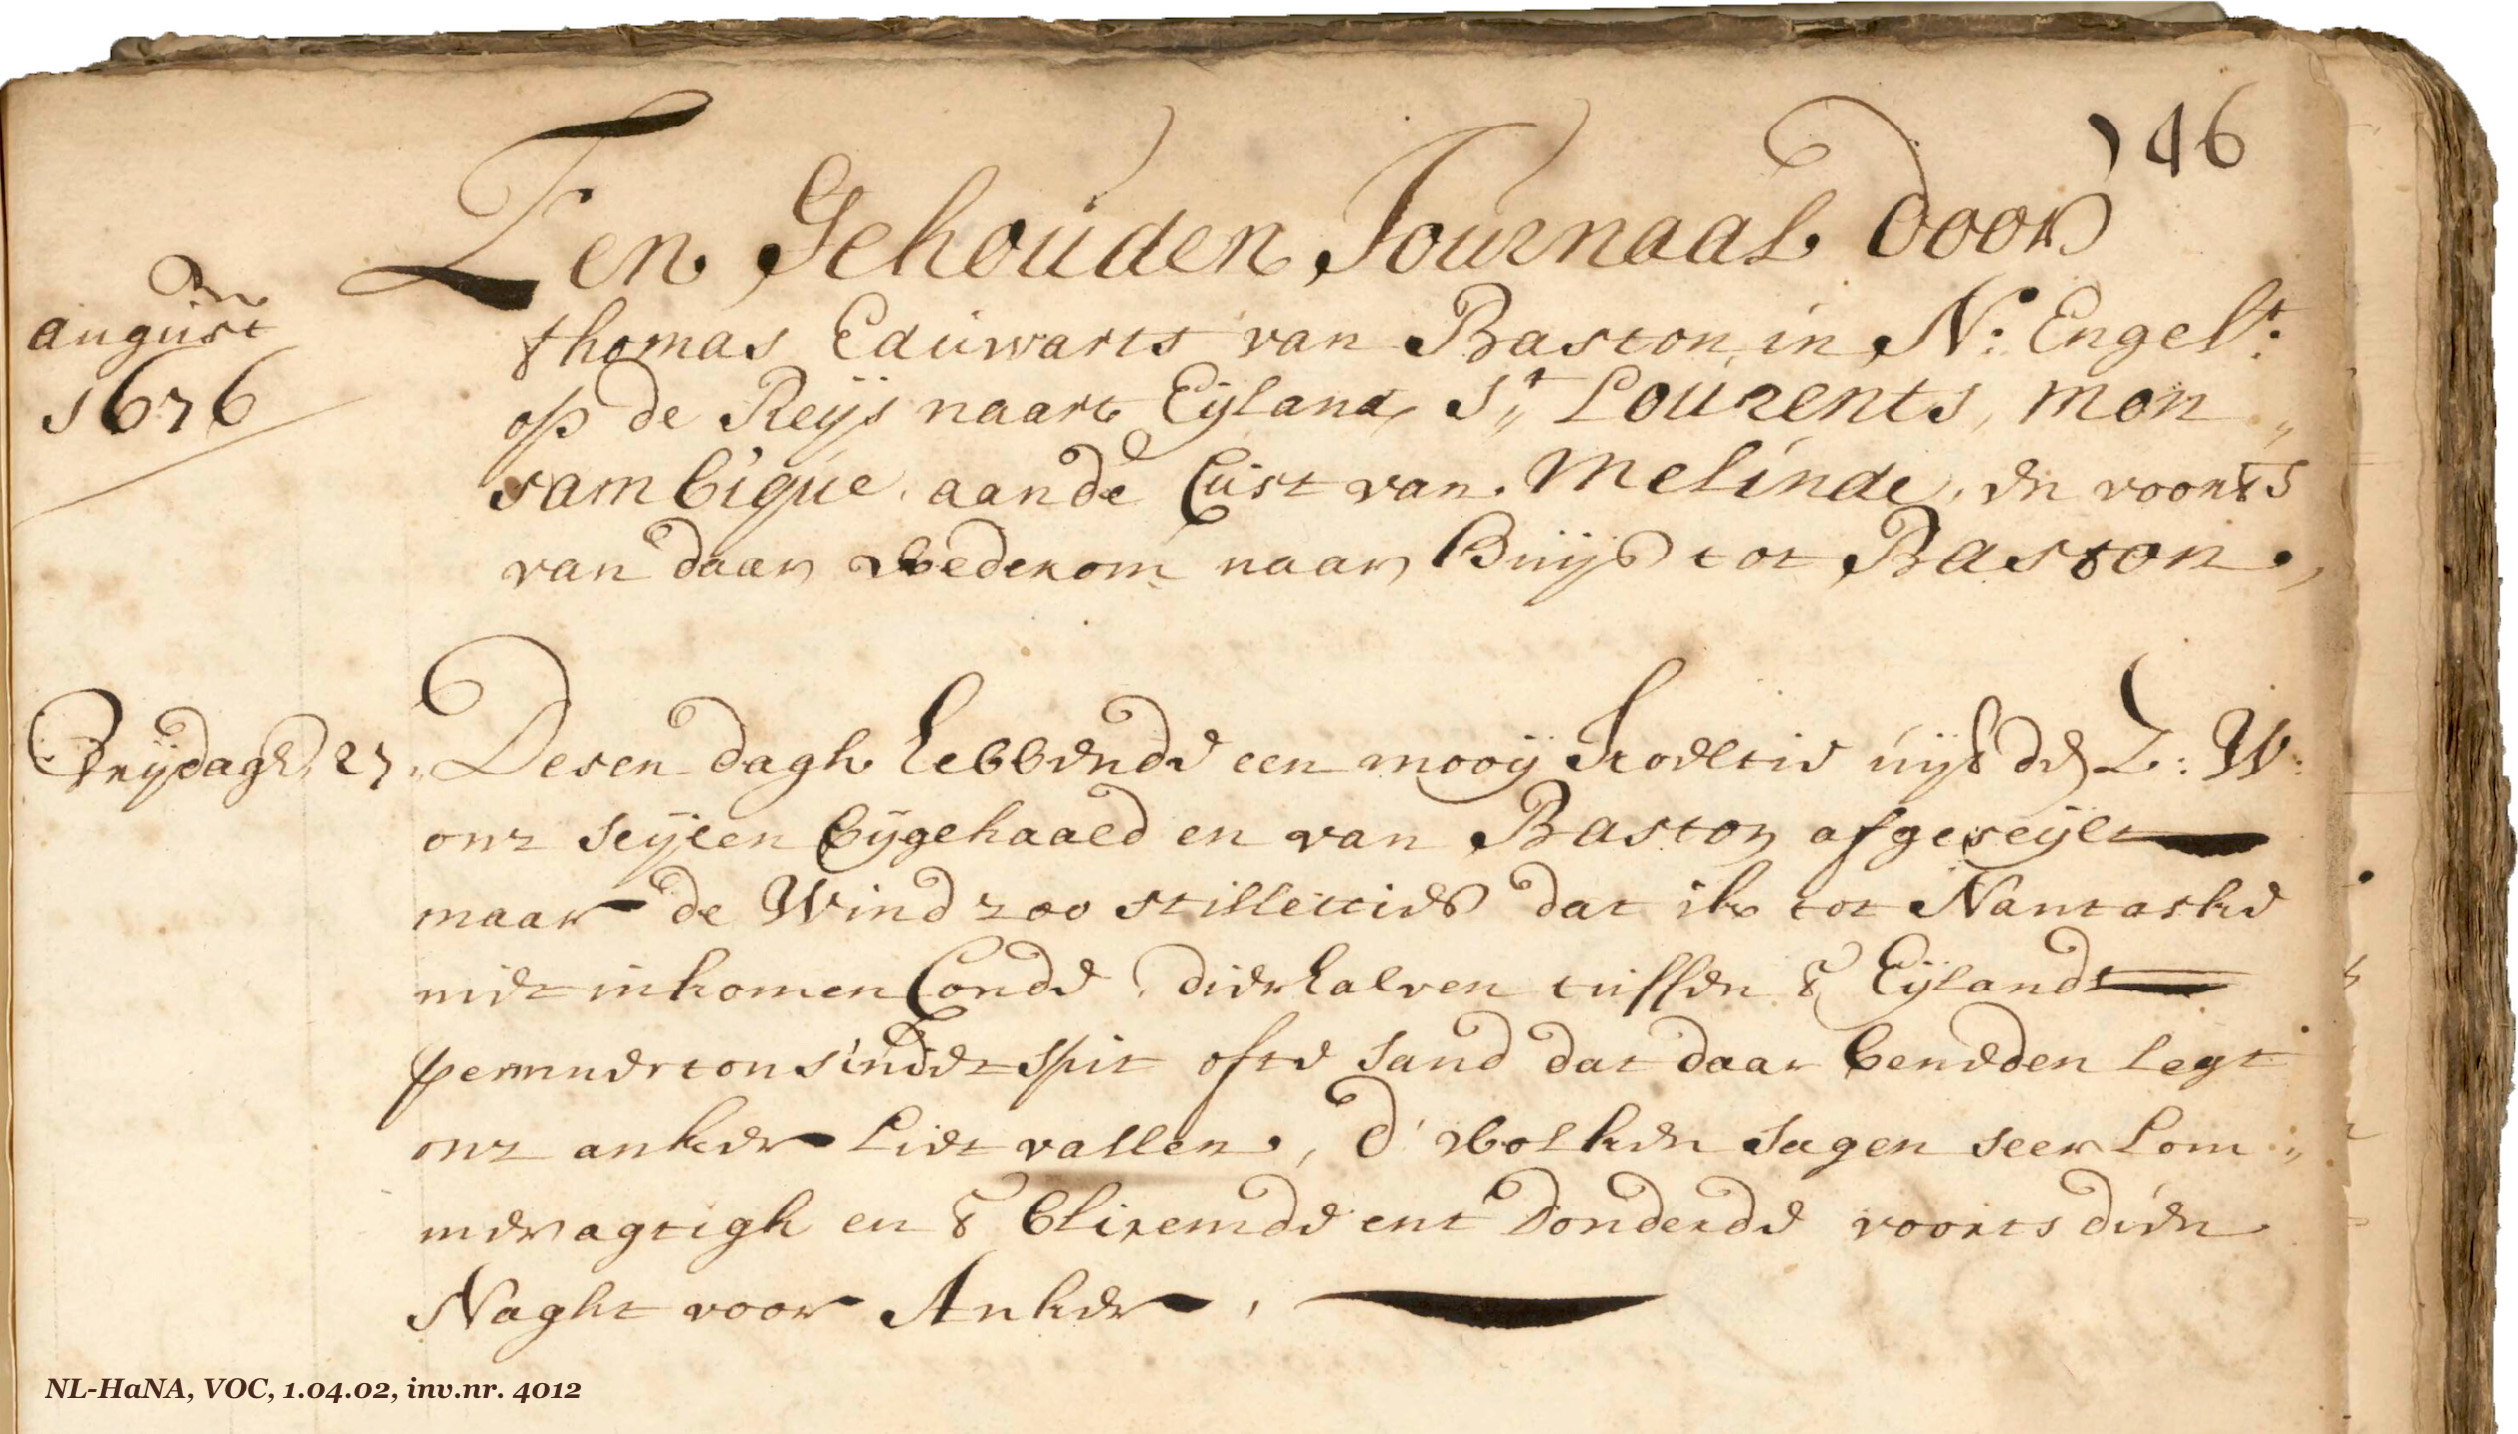 146
Een Gehouden Journaal door
In
august
1676
thomas Eduwarts van Baston in N: Engelt:
op de Reijs naart Eijland St Lourents, mon„
sambique aande Cust van Melinde, en voorts
van daar wederom naar Huijs tot Baston,
Vrijdagh 27„ Desen dagh hebbende een mooij Koeltie uijt de Z: W:
onz seijlen bijgehaald en van Baston afgeseijlt
maar de Wind zoo stilletties dat ik tot Nantaske
niet inkomen Conde, dierhalven tussen t Eijlandt
pemmerton sindet spit ofte sand dat daar beneden legt
onz anker liet vallen, d' wolken sagen seer lom„
meragtigh en t blixemde ent Donderde voorts dien
Naght voor Anker,
NL-HaNA, VOC, 1.04.02, inv.nr. 4012